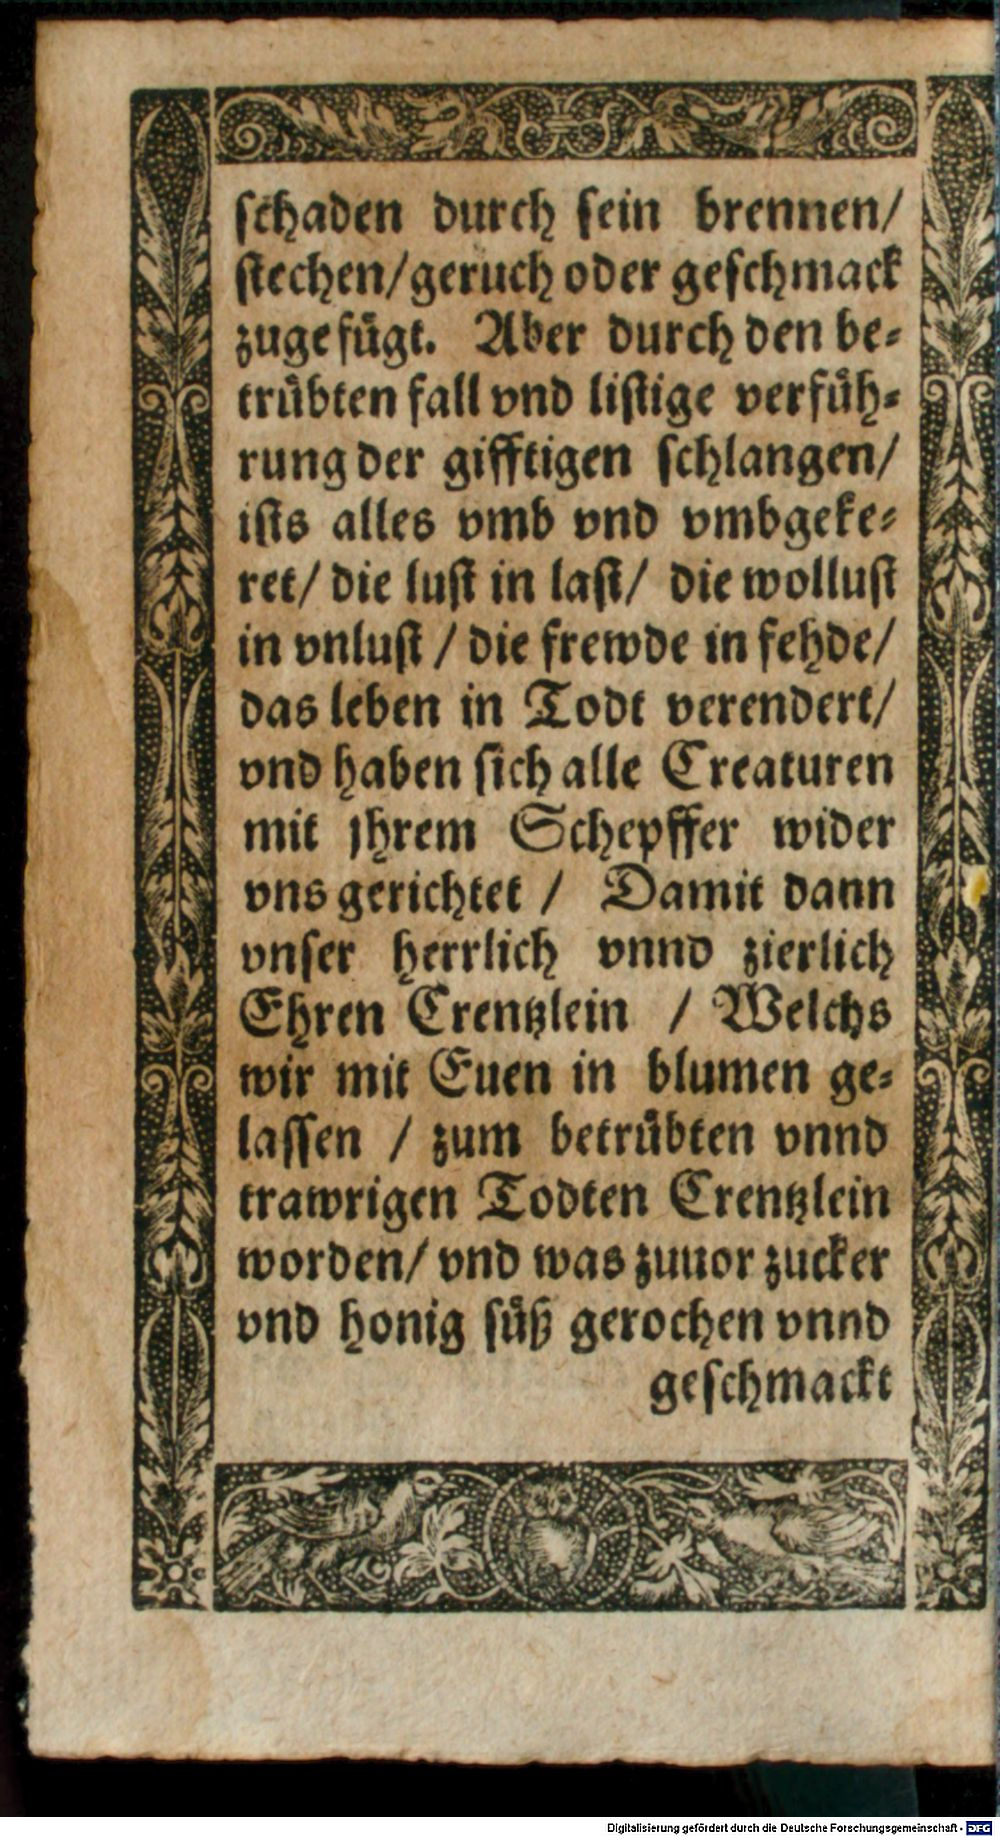 schaden durch sein brennen/
stechen/geruch oder geschmack
zugefügt. Aber durch den be⸗
trübten fall vnd listige verfüh⸗
rung der gifftigen schlangen/
ists alles vmb vnd vmbgeke⸗
ret/ die lust in last/ die wollust
in vnlust / die frewde in fehde/
das leben in Todt verendert/
vnd haben sich alle Creaturen
mit jhrem Schepffer wider
vns gerichtet / Damit dann
vnser herrlich vnnd zierlich
Ehren Crentzlein / Welchs
wir mit Euen in blumen ge⸗
lassen / zum betrübten vnnd
trawrigen Todten Crentzlein
worden/ vnd was zuuor zucker
vnd honig süß gerochen vnnd
geschmackt
Digitalisierung gefördert durch die Deutsche Forschungsgemeinschaft - DFG